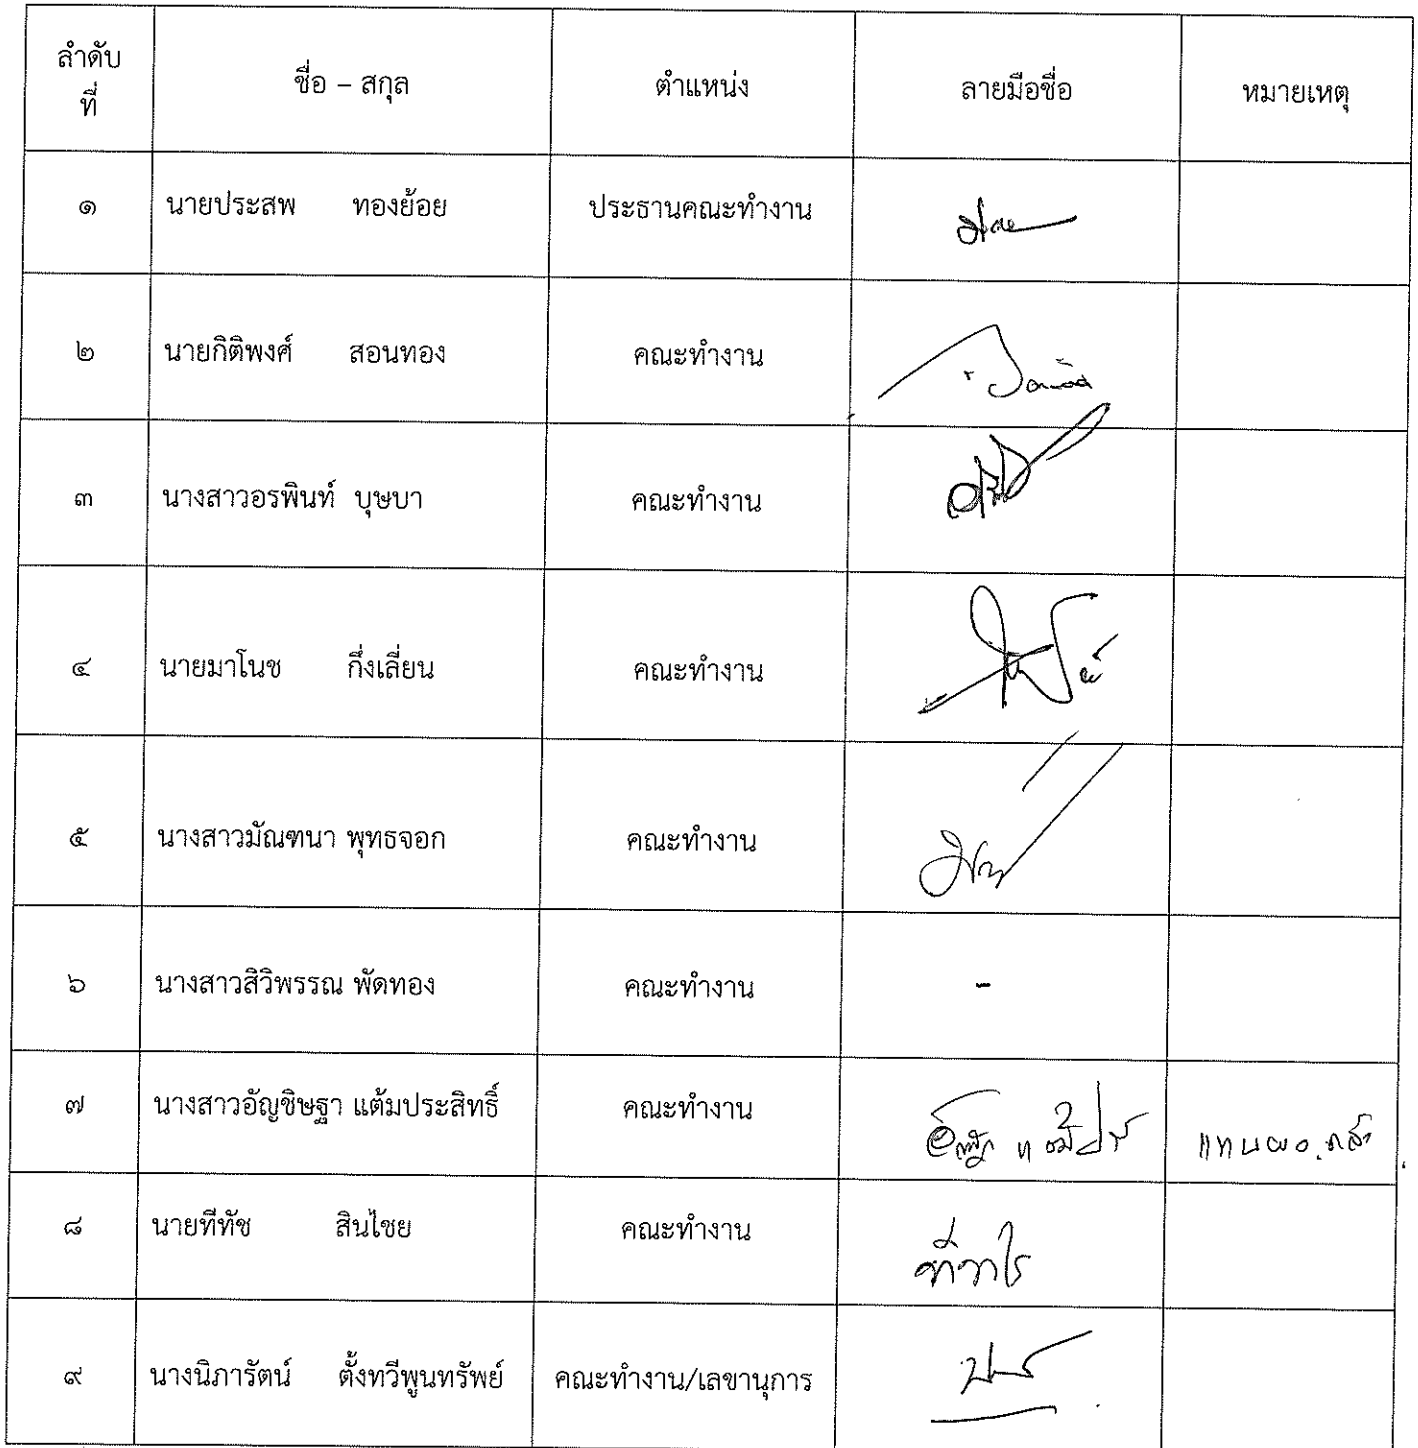 ลำดับ
ที่
ชื่อ – สกุล ตำแหน่ง ลายมือชื่อ หมายเหตุ
๑ นายประสพ ทองย้อย ประธานคณะทำงาน
๒ นายกิติพงศ์ สอนทอง คณะทำงาน
๓ นางสาวอรพินท์ บุษบา คณะทำงาน
๔ นายมาโนช กึ่งเลี่ยน คณะทำงาน
๕ นางสาวมัณฑนา พุทธจอก คณะทำงาน
๖ นางสาวสิวิพรรณ พัดทอง คณะทำงาน -
๗ นางสาวอัญชิษฐา แต้มประสิทธิ์ คณะทำงาน แทน ผอ.กสง
๘ นายทีทัช สินไชย คณะทำงาน
๙ นางนิภารัตน์ ตั้งทวีพูนทรัพย์ คณะทำงาน/เลขานุการ